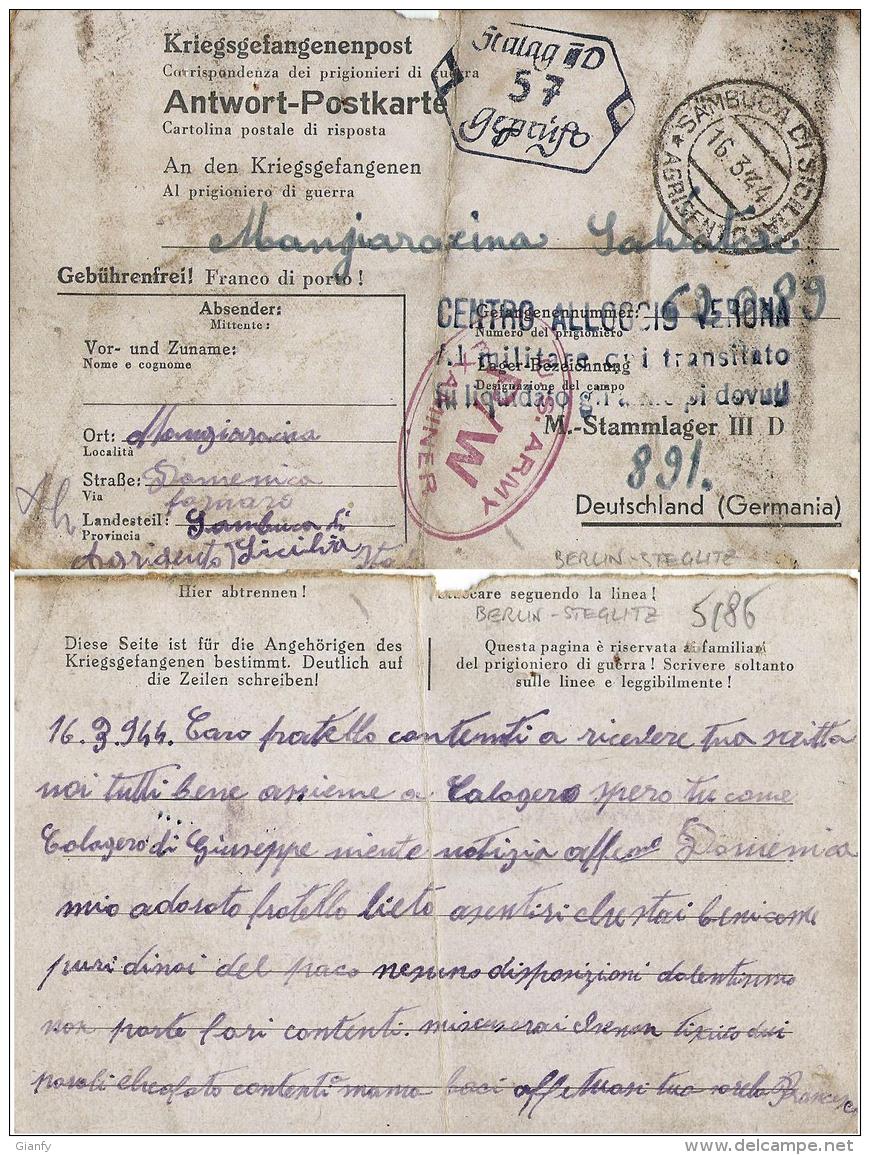 Kriegsgefangenenpost
Corrispondenza dei prigionieri di guerra
Antwort-Postkarte
Cartolina postale di risposta
An den Kriegsgefangenen
Al prigioniero di guerra
Stalag III D
57
Geprüft
SAMBUCA DI SICILIA
16.3.44
AGRIGENTO
Mangiaracina Salvatore
Gebührenfrei! Franco di porto!
Absender:
Mittente:
Vor- und Zuname:
Nome e cognome
Ort: Mangiaracina
Località
Straße: Domenica
Via fornaro
Landesteil: Sambuca di
Provincia
Agrigento Sicilia
Gefangenennummer:
Numero del prigioniero
CENTRO ALLOGGIO VERONA
Al militare qui transitato
Lager-Bezeichnung
Designazione del campo
liquidato
dovuti
U.S. ARMY
P/W
EXAMINER
M.-Stammlager III D
891.
Deutschland (Germania)
BERLIN-STEGLITZ
Hier abtrennen!
Staccare seguendo la linea!
BERLIN-STEGLITZ 5/86
Diese Seite ist für die Angehörigen des
Kriegsgefangenen bestimmt. Deutlich auf
die Zeilen schreiben!
Questa pagina è riservata ai familiari
del prigioniero di guerra! Scrivere soltanto
sulle linee e leggibilmente!
16.3.944. Caro fratello contenti a ricevere tua scritta
noi tutti bene assieme a Calogero spero tu come
Calogero di Giuseppe niente notizia affemo Domenica
mio adorato fratello lieto asentiri che stai beni come
puri dinoi del paco nesuno disposizioni
non porte fari contenti. miscuserai
contenti mamma baci affetuosi tua sorela Francesc
Gianfy
delcampe.net